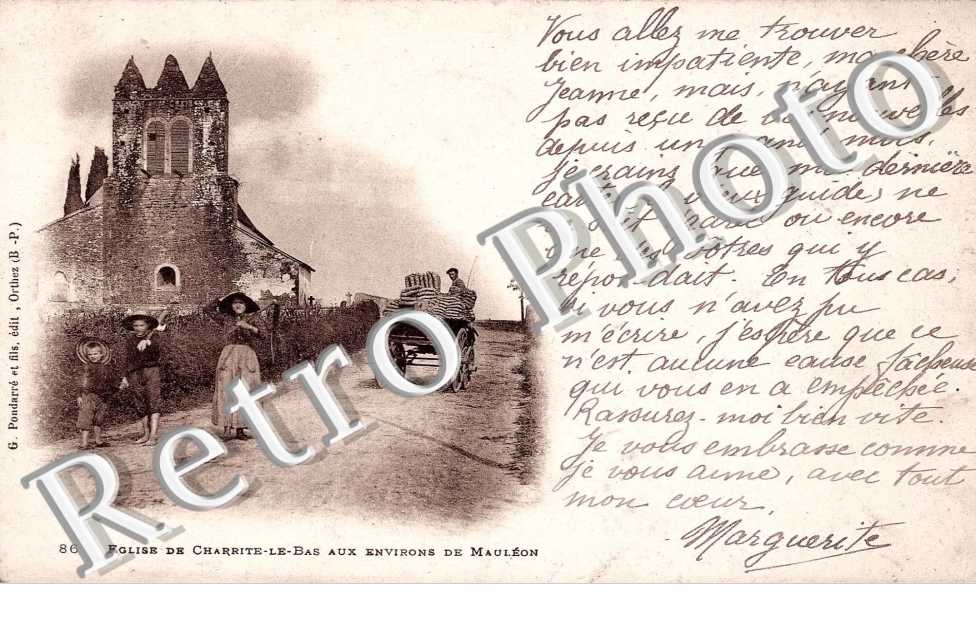 Vous allez me trouver
bien impatiente, ma chère
Jeanne, mais, n'ayant
pas reçu de vos nouvelles
depuis un an mois,
je crains que ma dernière
ne
ou encore
une des vôtres qui y
répondait. En tous cas,
si vous n'avez pu
m'écrire, j'espère que ce
n'est aucune cause fâcheuse
qui vous en a empêchée.
Rassurez-moi bien vite.
Je vous embrasse comme
je vous aime, avec tout
mon cœur,
Marguerite
G. Pondarré et fils, édit, Orthez (B.-P.)
86 EGLISE DE CHARRITE-LE-BAS AUX ENVIRONS DE MAULÉON
Retro Photo
Retro Photo